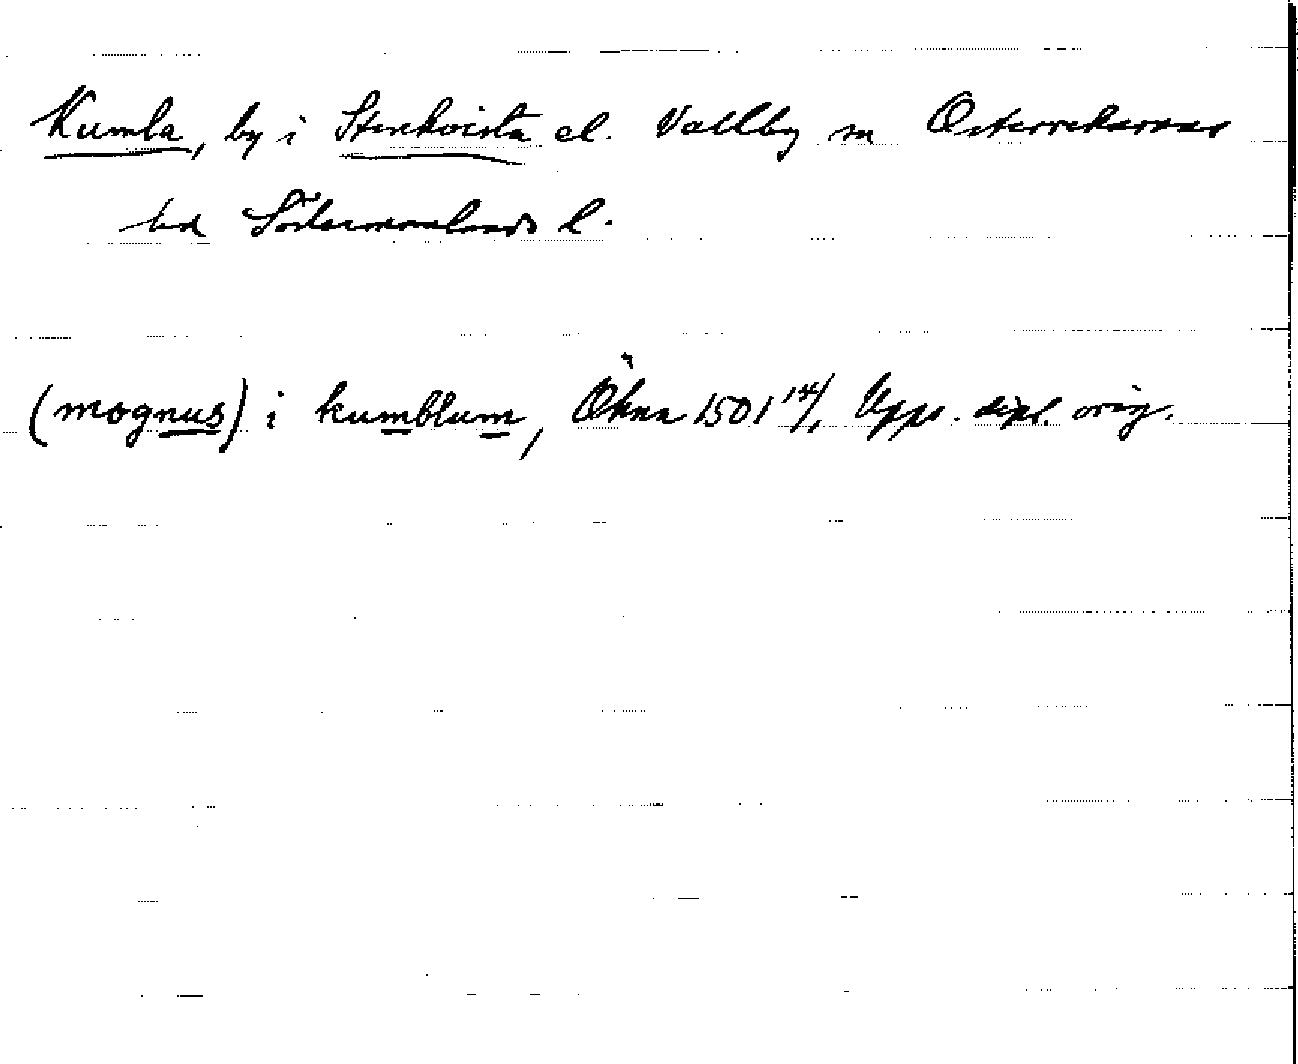 Kumla, by i Stenkvista el. Vallby sn Österrekarnes
hd Södermanlands l.
(mognus) i kumblum, Ökna 1501 14/, Upps. dipl. orig.